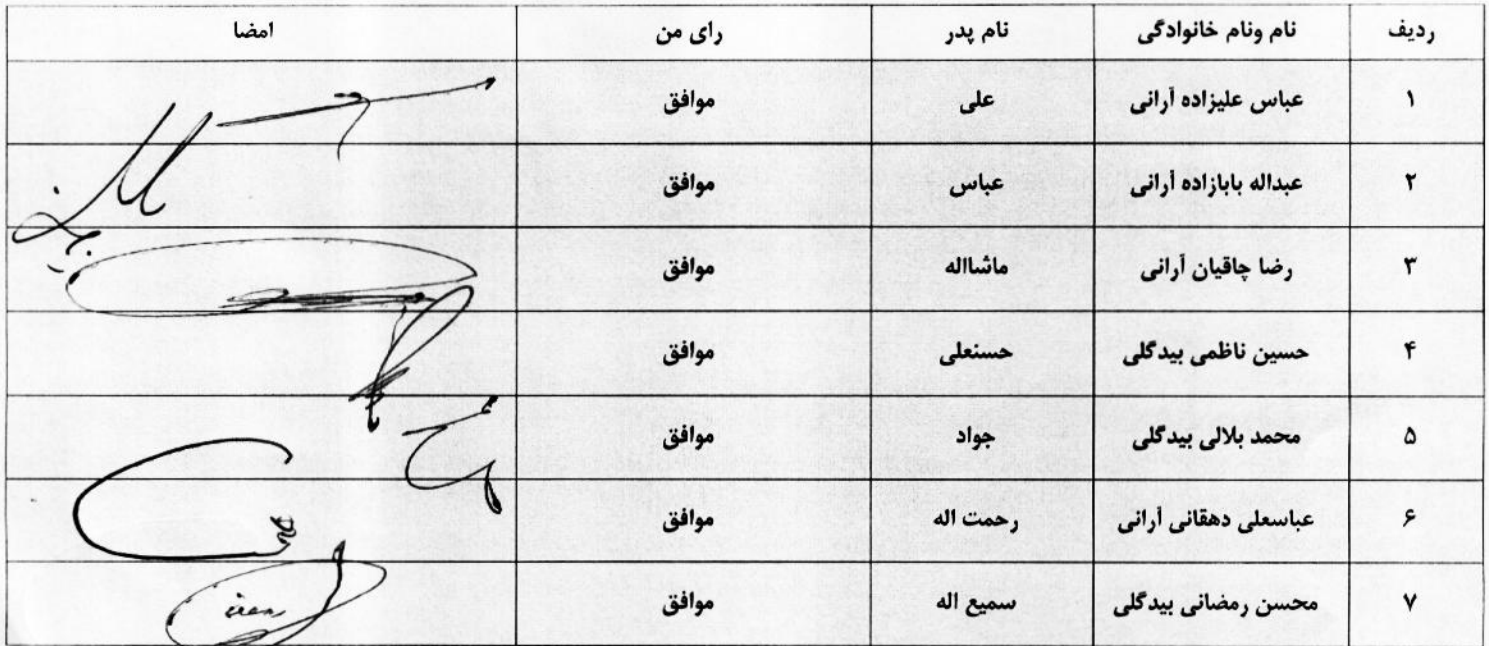 ردیف نام ونام خانوادگی نام پدر رای من امضا
۱ عباس علیزاده آرانی علی موافق
۲ عبداله بابازاده آرانی عباس موافق
۳ رضا چاقیان آرانی ماشااله موافق
۴ حسین ناظمی بیدگلی حسنعلی موافق
۵ محمد بلالی بیدگلی جواد موافق
۶ عباسعلی دهقانی آرانی رحمت اله موافق
۷ محسن رمضانی بیدگلی سمیع اله موافق